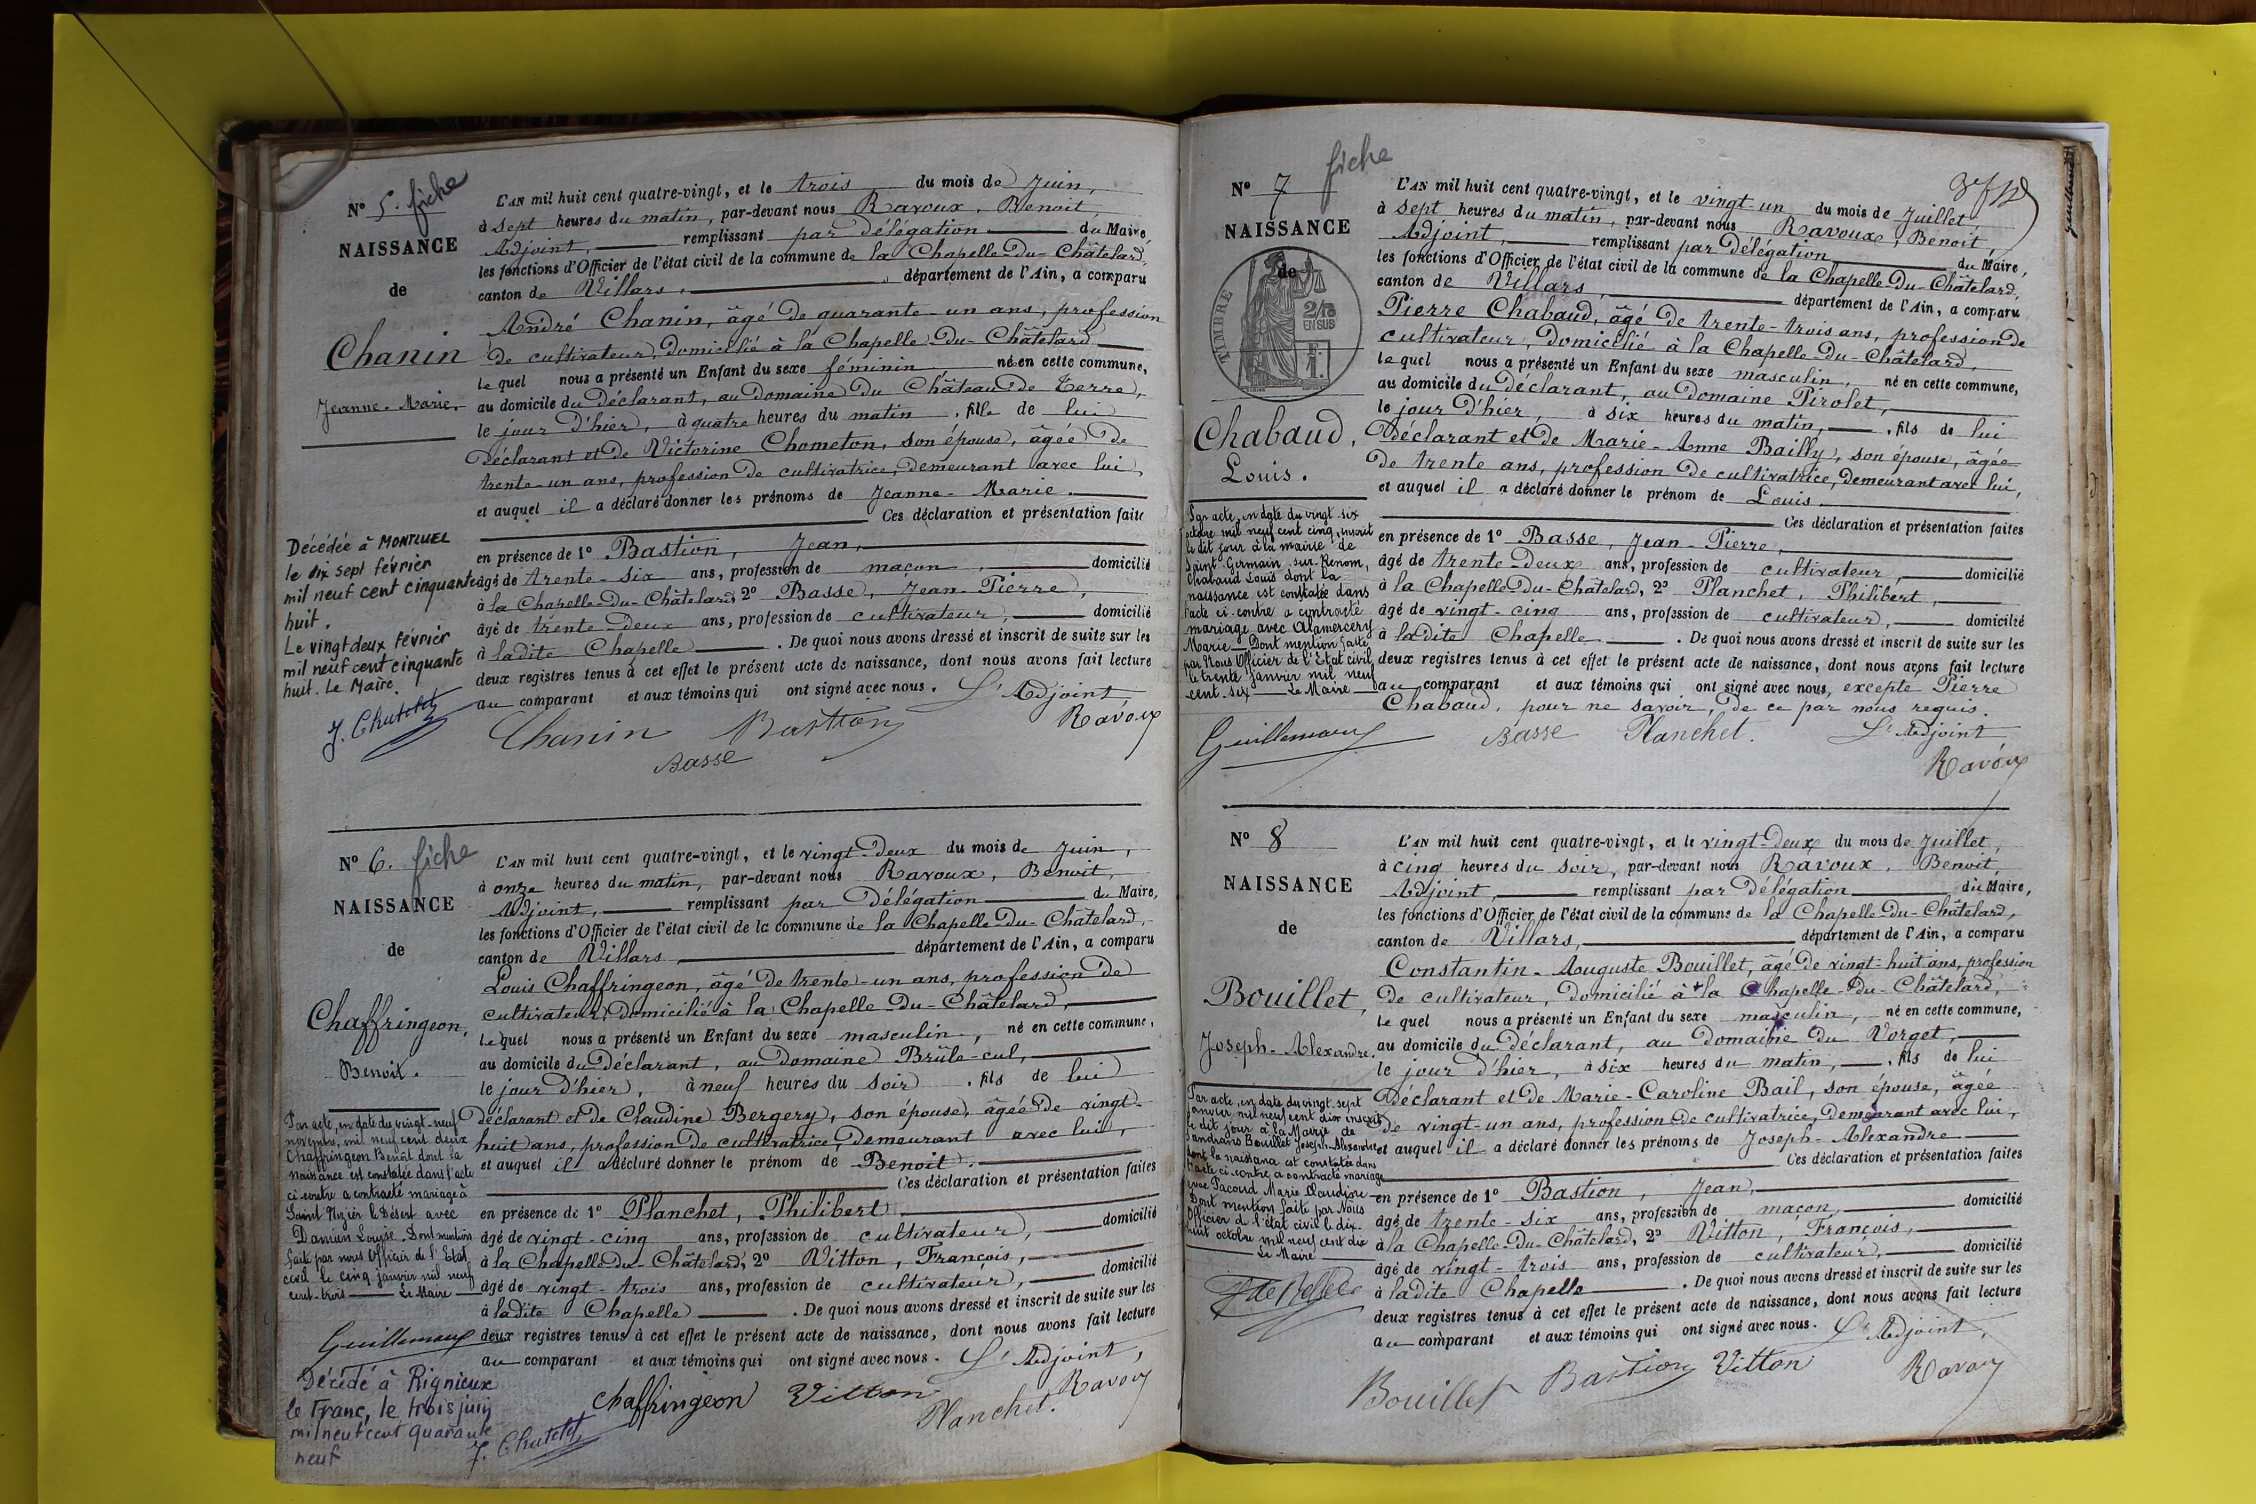 N° 5. fiche
NAISSANCE
de
Chanin
Jeanne-Marie.
L'AN mil huit cent quatre-vingt, et le trois du mois de Juin,
à sept heures du matin, par-devant nous Ravoux, Benoit,
Adjoint, remplissant par délégation du Maire,
les fonctions d'Officier de l'état civil de la commune de la Chapelle-du-Châtelard,
canton de Villars, département de l'Ain, a comparu
André Chanin, âgé de quarante-un ans, profession
de cultivateur, domicilié à la Chapelle-du-Châtelard
lequel nous a présenté un Enfant du sexe féminin, né en cette commune,
au domicile du déclarant, au domaine du Château de Terre,
le jour d'hier, à quatre heures du matin, fille de lui
déclarant et de Victorine Chometon, son épouse, âgée de
trente-un ans, profession de cultivatrice, demeurant avec lui,
et auquel il a déclaré donner les prénoms de Jeanne-Marie.
Ces déclaration et présentation faite
en présence de 1° Bastion, Jean,
âgé de trente-six ans, profession de maçon, domicilié
à la Chapelle-du-Châtelard, 2° Basse, Jean-Pierre,
âgé de trente-deux ans, profession de cultivateur, domicilié
à ladite Chapelle. De quoi nous avons dressé et inscrit de suite sur les
deux registres tenus à cet effet le présent acte de naissance, dont nous avons fait lecture
au comparant et aux témoins qui ont signé avec nous. L'Adjoint,
Chanin Bastion Ravoux
Basse
Décédée à MONTLUEL
le dix sept février
mil neuf cent cinquante
huit.
Le vingt deux février
mil neuf cent cinquante
huit. Le Maire.
J. Chatelet
N° 6. fiche
NAISSANCE
de
Chaffringeon,
Benoit.
L'AN mil huit cent quatre-vingt, et le vingt-deux du mois de Juin,
à onze heures du matin, par-devant nous Ravoux, Benoit,
Adjoint, remplissant par délégation du Maire,
les fonctions d'Officier de l'état civil de la commune de la Chapelle-du-Châtelard,
canton de Villars département de l'Ain, a comparu
Louis Chaffringeon, âgé de trente-un ans, profession de
cultivateur, domicilié à la Chapelle-du-Châtelard,
lequel nous a présenté un Enfant du sexe masculin, né en cette commune,
au domicile du déclarant, au domaine Brûle-cul,
le jour d'hier, à neuf heures du soir, fils de lui
déclarant et de Claudine Bergery, son épouse, âgée de vingt-
huit ans, profession de cultivatrice, demeurant avec lui,
et auquel il a déclaré donner le prénom de Benoit.
Ces déclaration et présentation faites
en présence de 1° Planchet, Philibert
âgé de vingt-cinq ans, profession de cultivateur, domicilié
à la Chapelle-du-Châtelard, 2° Vitton, François,
âgé de vingt-trois ans, profession de cultivateur, domicilié
à ladite Chapelle. De quoi nous avons dressé et inscrit de suite sur les
deux registres tenus à cet effet le présent acte de naissance, dont nous avons fait lecture
au comparant et aux témoins qui ont signé avec nous. L'Adjoint,
Chaffringeon Vitton Planchet. Ravoux
Par acte, en date du vingt-neuf
novembre, mil neuf cent deux
Chaffringeon Benoît dont la
naissance est constatée dans l'acte
ci-contre a contracté mariage à
Saint Nizier le Désert avec
Damian Louise. Dont mention
faite par nous Officier de l'Etat
civil le cinq janvier mil neuf
cent-trois Le Maire
Guillemaux
Décédé à Rignieux
le Franc, le trois juin
mil neuf cent quarante
neuf
J. Chatelet
N° 7 fiche
NAISSANCE
de
TIMBRE
2/10
EN SUS
Chabaud,
Louis.
L'AN mil huit cent quatre-vingt, et le vingt-un du mois de Juillet,
à sept heures du matin, par-devant nous Ravoux, Benoit,
Adjoint, remplissant par délégation du Maire,
les fonctions d'Officier de l'état civil de la commune de la Chapelle-du-Châtelard,
canton de Villars, département de l'Ain, a comparu
Pierre Chabaud, âgé de trente-trois ans, profession de
cultivateur, domicilié à la Chapelle-du-Châtelard,
lequel nous a présenté un Enfant du sexe masculin, né en cette commune,
au domicile du déclarant, au domaine Pirolet,
le jour d'hier, à six heures du matin, fils de lui
déclarant et de Marie-Anne Bailly, son épouse, âgée
de trente ans, profession de cultivatrice, demeurant avec lui,
et auquel il a déclaré donner le prénom de Louis.
Ces déclaration et présentation faites
en présence de 1° Basse, Jean-Pierre,
âgé de trente-deux ans, profession de cultivateur, domicilié
à la Chapelle-du-Châtelard, 2° Planchet, Philibert,
âgé de vingt-cinq ans, profession de cultivateur, domicilié
à ladite Chapelle. De quoi nous avons dressé et inscrit de suite sur les
deux registres tenus à cet effet le présent acte de naissance, dont nous avons fait lecture
au comparant et aux témoins qui ont signé avec nous, excepté Pierre
Chabaud, pour ne savoir, de ce par nous requis.
Basse Planchet. L'Adjoint
Ravoux
Par acte, en date du vingt-six
octobre mil neuf cent cinq, inscrit
le dit jour à la mairie de
Saint Germain-sur-Renom,
Chabaud Louis dont la
naissance est constatée dans
l'acte ci-contre a contracté
mariage avec Alamercery
Marie Dont mention faite
par Nous Officier de l'Etat civil
le trente Janvier mil neuf
cent-six Le Maire
Guillemaux
N° 8
NAISSANCE
de
Bouillet,
Joseph-Alexandre.
L'AN mil huit cent quatre-vingt, et le vingt-deux du mois de Juillet,
à cinq heures du soir, par-devant nous Ravoux, Benoit,
Adjoint, remplissant par délégation du Maire,
les fonctions d'Officier de l'état civil de la commune de la Chapelle-du-Châtelard,
canton de Villars, département de l'Ain, a comparu
Constantin-Auguste Bouillet, âgé de vingt-huit ans, profession
de cultivateur, domicilié à la Chapelle-du-Châtelard,
lequel nous a présenté un Enfant du sexe masculin, né en cette commune,
au domicile du déclarant, au domaine du Vorget,
le jour d'hier, à six heures du matin, fils de lui
déclarant et de Marie-Caroline Bail, son épouse, âgée
de vingt-un ans, profession de cultivatrice, demeurant avec lui,
et auquel il a déclaré donner les prénoms de Joseph-Alexandre
Ces déclaration et présentation faites
en présence de 1° Bastion, Jean,
âgé de trente-six ans, profession de maçon, domicilié
à la Chapelle-du-Châtelard, 2° Vitton, François,
âgé de vingt-trois ans, profession de cultivateur, domicilié
à ladite Chapelle. De quoi nous avons dressé et inscrit de suite sur les
deux registres tenus à cet effet le présent acte de naissance, dont nous avons fait lecture
au comparant et aux témoins qui ont signé avec nous. L'Adjoint,
Bouillet Bastion Vitton Ravoux
Par acte, en date du vingt-sept
janvier mil neuf cent dix inscrit
le dit jour à la Mairie de
Sandrans Bouillet Joseph-Alexandre
dont la naissance est constatée dans
l'acte ci-contre a contracté mariage
avec Pacoud Marie Claudine
Dont mention faite par Nous
Officier de l'état civil le dix-
huit octobre mil neuf cent dix
Le Maire